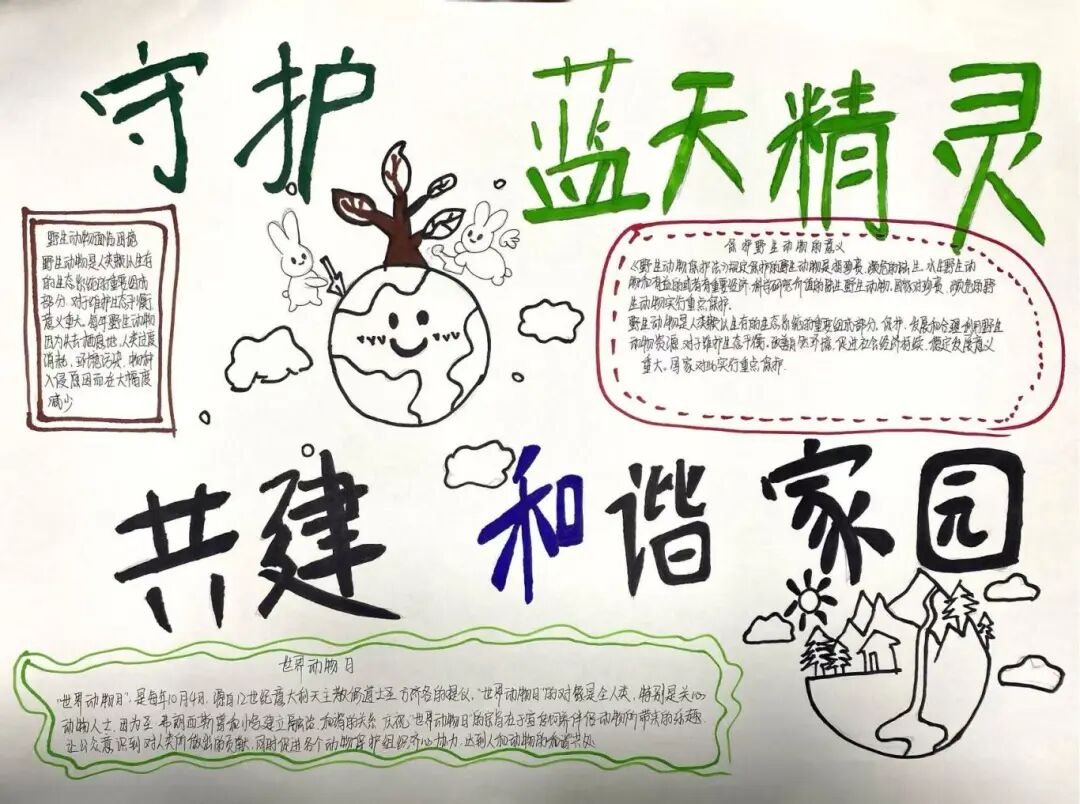 守护 蓝天精灵
野生动物面临困境
野生动物是人类赖以生存
的生态系统的重要组成
部分，对于维护生态平衡
意义重大。每年野生动物
因为失去栖息地，人类过度
消耗，环境污染，物种
入侵原因而在大幅度
减少
保护野生动物的意义
《野生动物保护法》规定保护的野生动物是指珍贵、濒危的陆生、水生野生动
物和有益的或者有重要经济、科学研究价值的陆生野生动物。国家对珍贵、濒危的野
生动物实行重点保护。
野生动物是人类赖以生存的生态系统的重要组成部分。保护、发展和合理利用野生
动物资源，对于维护生态平衡，改善自然环境，促进社会经济持续、稳定发展意义
重大。国家对此实行重点保护.
共建 和谐 家园
世界动物日
"世界动物日"，是每年10月4日，源自12世纪意大利天主教修道士圣方济各的提议。"世界动物日"的对象是全人类，特别是关心
动物人士，因为圣·弗朗西斯曾和小鸟建立 庆祝"世界动物日"的 动物所带来的乐趣
让公众意识到对人类所做出的贡献，同时促进各个动物保护组织齐心协力，达到人和动物的和谐共处